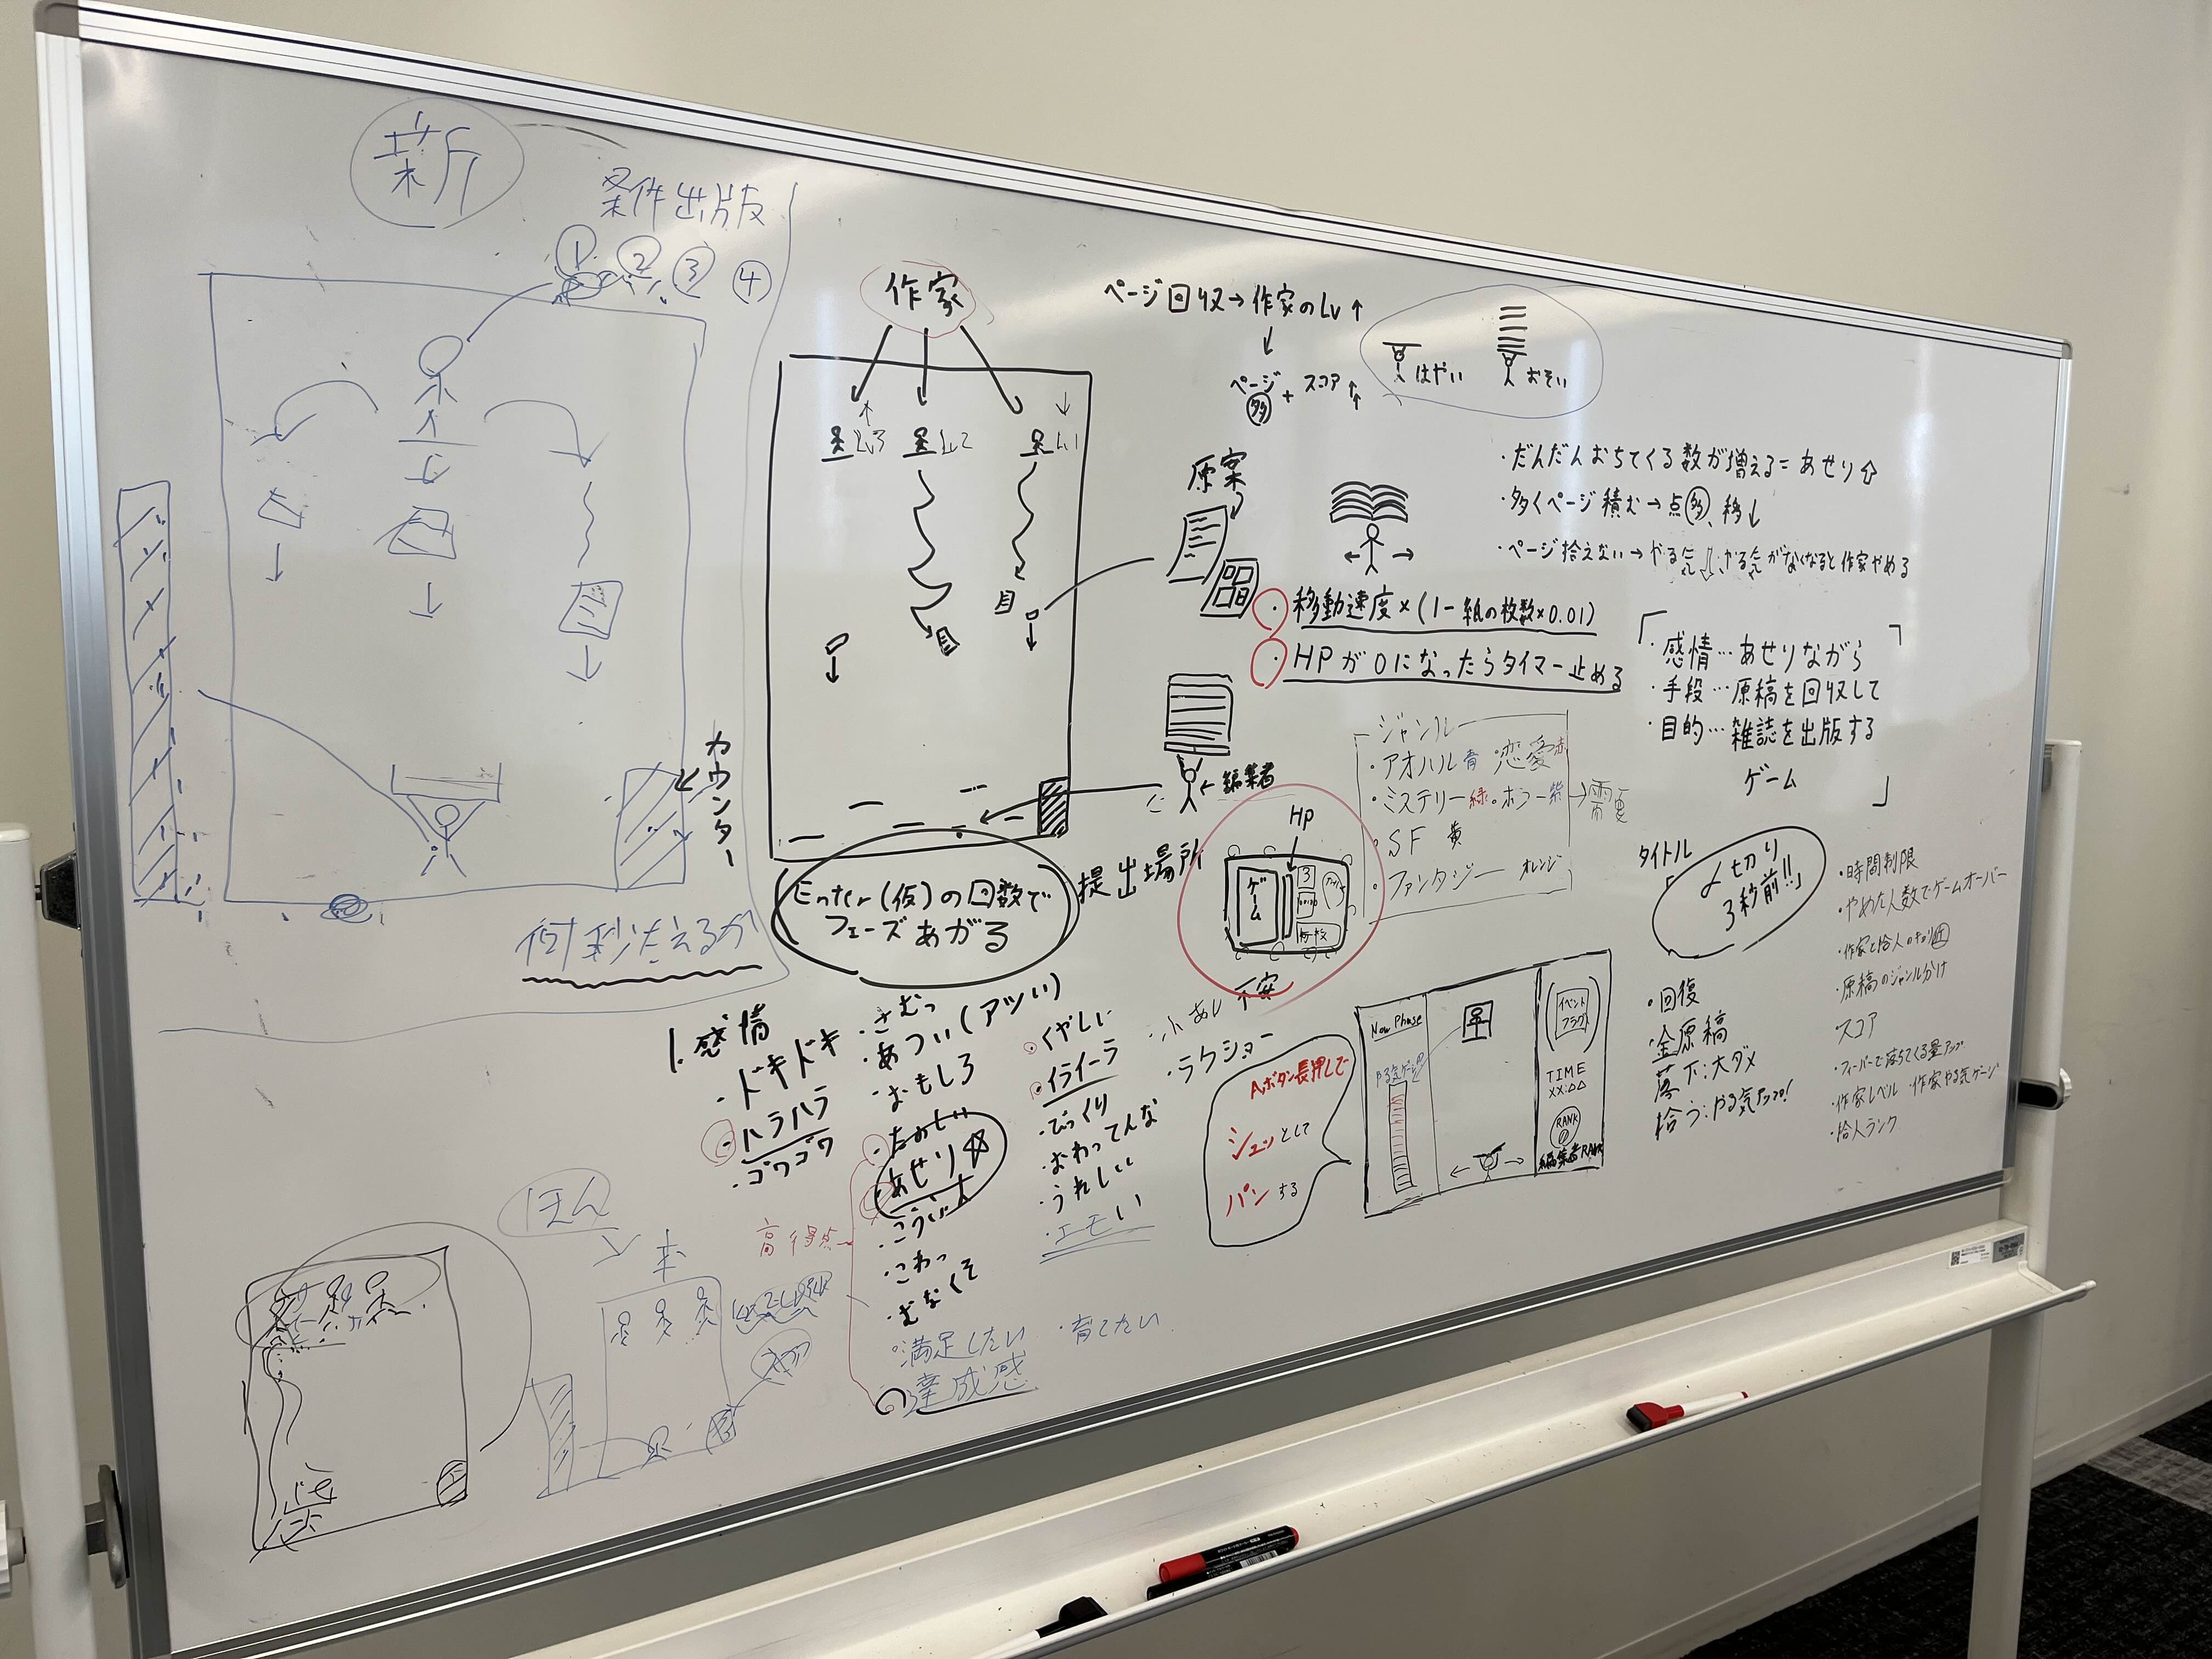 新
条件出版
① ② ③ ④
カウンター
何秒たえるか
作家
Lv3
Lv2
Lv1
ページ回収→作家のLv↑
↓
ページ多 + スコア↑↑
はやい
おそい
原案
・だんだんおちてくる数が増える=あせり⇧
・多くページ積む→点多、移↓
・ページ拾えない→やる気⇩、やる気がなくなると作家やめる
・移動速度×(1-紙の枚数×0.01)
・HPが0になったらタイマー止める
「・感情…あせりながら
・手段…原稿を回収して
・目的…雑誌を出版する
ゲーム」
←編集者
提出場所
Enter(仮)の回数で
フェーズあがる
ジャンル
・アオハル 青 ・恋愛 赤
・ミステリー 緑 ・ホラー 紫 →需要
・SF 黄
・ファンタジー オレンジ
HP
ゲーム
3
タイトル
「〆切り
3秒前!!」
・時間制限
・やめた人数でゲームオーバー
・原稿のジャンル分け
スコア
・フィーバーで落ちてくる量アップ
・作家レベル ・作家やる気ゲージ
・拾人ランク
・回復
・金原稿
落下:大ダメ
拾う:やる気アップ!
1.感情
・ドキドキ
・ハラハラ
・ゴワゴワ
・さむっ
・あつい(アツい)
・おもしろ
・たのしい
・あせり☆
・こわっ
・むなくそ
・満足したい
・育てたい
達成感
・くやしい
・イライーラ
・びっくり
・おわってんな
・うれしい
・エモい
不安
・ラクショー
高得点
Aボタン長押しで
シュッとして
パンする
Now Phase
イベント
フラグ
TIME
XX:△△
RANK
編集者RANK
ほん